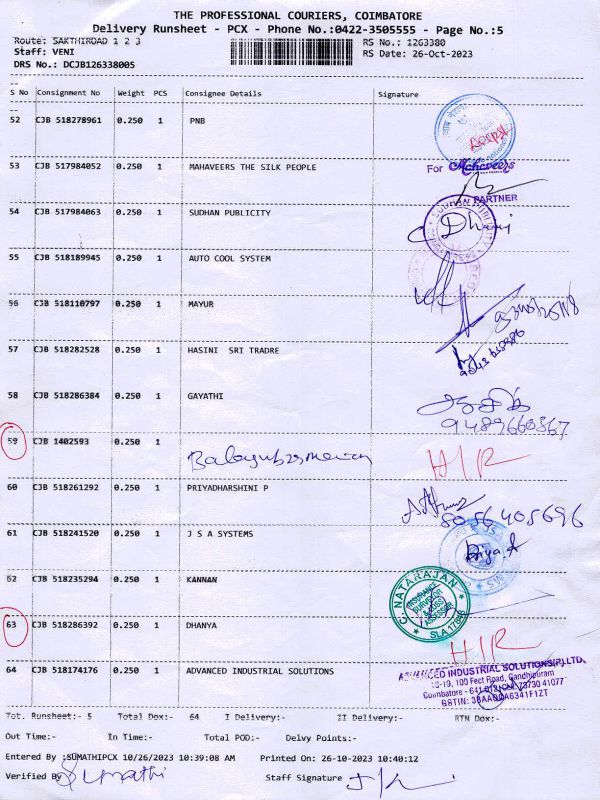 THE PROFESSIONAL COURIERS, COIMBATORE
Delivery Runsheet - PCX - Phone No.:0422-3505555 - Page No.:5
Route: SAKTHIROAD 1 2 3 RS No.: 1263380
Staff: VENI RS Date: 26-Oct-2023
DRS No.: DCJB126338005
S No Consignment No Weight PCS Consignee Details Signature
52 CJB 518278961 0.250 1 PNB
53 CJB 517984052 0.250 1 MAHAVEERS THE SILK PEOPLE For Mahaveers
PARTNER
54 CJB 517984063 0.250 1 SUDHAN PUBLICITY
55 CJB 518189945 0.250 1 AUTO COOL SYSTEM
56 CJB 518110797 0.250 1 MAYUR
57 CJB 518282528 0.250 1 HASINI SRI TRADRE
58 CJB 518286384 0.250 1 GAYATHI
9489660367
59 CJB 1402593 0.250 1 HIR
60 CJB 518261292 0.250 1 PRIYADHARSHINI P
8056405696
61 CJB 518241520 0.250 1 J S A SYSTEMS
62 CJB 518235294 0.250 1 KANNAN
C. NATARAJAN
INSURANCE SURVEYOR & LOSS ASSESSOR
63 CJB 518286392 0.250 1 DHANYA HIR
64 CJB 518174176 0.250 1 ADVANCED INDUSTRIAL SOLUTIONS
ADVANCED INDUSTRIAL SOLUTIONS(P)LTD.
18-19, 100 Feet Road, Gandhipuram
Coimbatore - 641 012
Tot. Runsheet:- 5 Total Dox:- 64 I Delivery:- II Delivery:- RTN Dox:-
Out Time:- In Time:- Total POD:- Delvy Points:-
Entered By :SUMATHIPCX 10/26/2023 10:39:08 AM Printed On: 26-10-2023 10:40:12
Verified By Sumathi Staff Signature